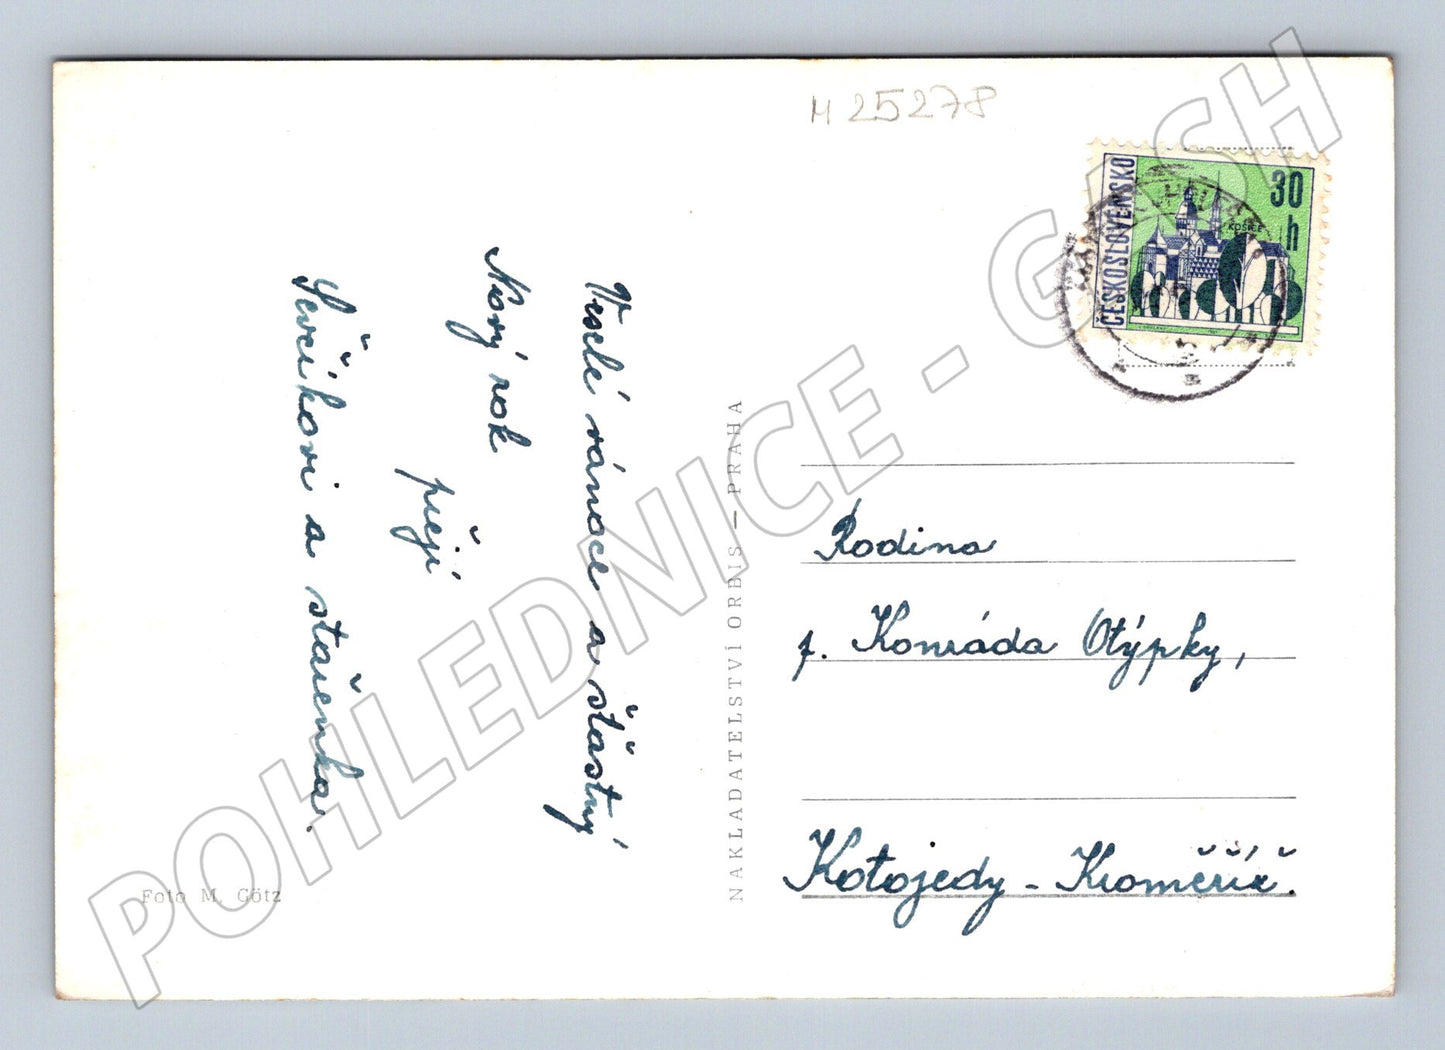 M 25278
ČESKOSLOVENSKO
30 h
KOŠICE
Veselé vánoce a šťastný
Nový rok
přejí
Ševčíkovi a stařenka.
Foto M. Götz
NAKLADATELSTVÍ ORBIS — PRAHA
Rodina
p. Konráda Otýpky,
Kotojedy - Kroměříž.
POHLEDNICE - GASH